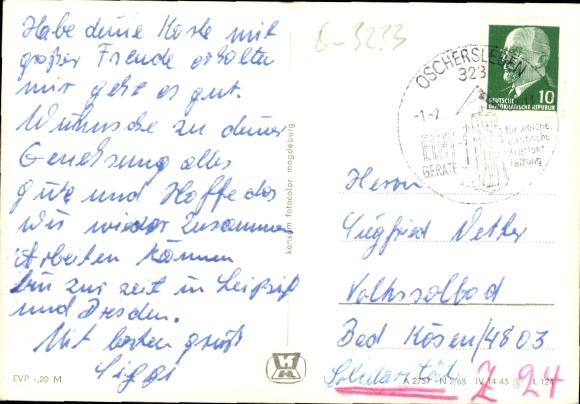 Habe deine Karte mit
großer Freude erhalten
mir geht es gut.
Wünsche zu deiner
Genehsung alles
gute und Hoffe das
wir wieder zusammen
Arbeiten können
bin zur zeit in Leipzig
und Dresden.
Mit besten gruß
Siggi
EVP -,20 M
konsum fotocolor magdeburg
6-3233
OSCHERSLEBEN
323
-1.-2.
GERÄTE
für weiche,
elastische
Kraftent-
faltung
DEUTSCHE
DEMOKRATISCHE REPUBLIK
10
Herrn
Siegfried
Volkssolbad
Bad Kösen/4803
Solidarität
Z 24
A 2757 - N 2/68 IV-14-45 L 124